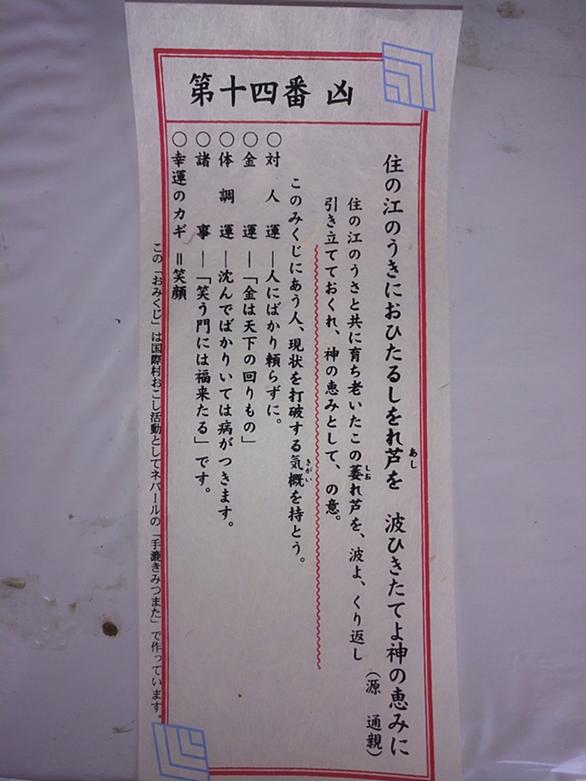 第十四番 凶
住の江のうきにおひたるしをれ芦を 波ひきたてよ神の恵みに
（源 通親）
住の江のうさと共に育ち老いたこの萎れ芦を、波よ、くり返し
引き立てておくれ、神の恵みとして、の意。
このみくじにあう人、現状を打破する気概を持とう。
○対人運―人にばかり頼らずに。
○金運―「金は天下の回りもの」
○体調運―沈んでばかりいては病がつきます。
○諸事―「笑う門には福来たる」です。
○幸運のカギ＝笑顔
この「おみくじ」は国際村おこし活動としてネパールの「手漉きみつまた」で作っています。